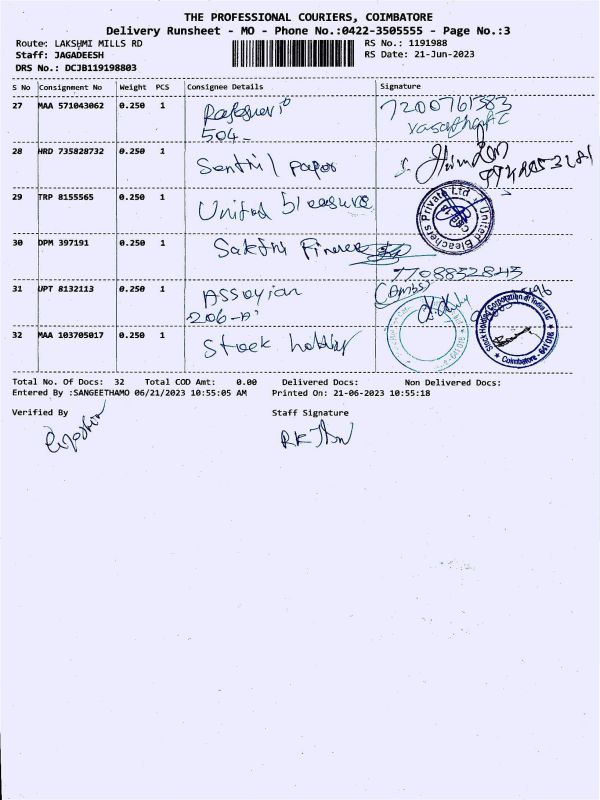 THE PROFESSIONAL COURIERS, COIMBATORE
Delivery Runsheet - MO - Phone No.:0422-3505555 - Page No.:3
Route: LAKSHMI MILLS RD
RS No.: 1191988
Staff: JAGADEESH
RS Date: 21-Jun-2023
DRS No.: DCJB119198803
S No Consignment No Weight PCS Consignee Details Signature
27 MAA 571043062 0.250 1 7200761383
504-
28 HRD 735828732 0.250 1 Senthil paper
29 TRP 8155565 0.250 1 United
United Bleachers Private Ltd
30 DPM 397191 0.250 1 Sakthi Finance
7708832843
31 UPT 8132113 0.250 1
206-
32 MAA 103705017 0.250 1 Stock
Stock Holding Corporation of India Ltd
Coimbatore - 641 018
Total No. Of Docs: 32 Total COD Amt: 0.00 Delivered Docs: Non Delivered Docs:
Entered By :SANGEETHAMO 06/21/2023 10:55:05 AM Printed On: 21-06-2023 10:55:18
Verified By Staff Signature